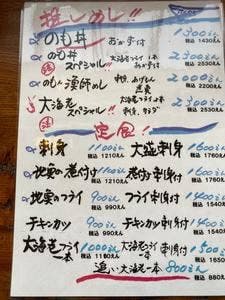 推しめし!!
のも丼 おかず付 1300えん
税込 1430えん
のも丼 スペシャル!! 大海老フライ1本 おかず付 2300えん
税込 2530えん
のもん漁師めし 刺身、あげもん 煮魚 2000えん
税込 2200えん
大海老スペシャル!! 大海老フライ 刺身、サラダ 2300えん
税込 2530えん
定食!
刺身 1100えん 大盛刺身 1600えん
税込 1210えん 税込 1760えん
地魚の煮付け 1100えん 煮付け刺身付 1600えん
税込 1210えん 税込 1760えん
地魚のフライ 900えん フライ刺身付 1400えん
税込 990えん 税込 1540
チキンカツ 900えん チキンカツ刺身付 1400
税込 990えん 税込 1540
大海老フライ一本 1000えん 大海老フライ一本 刺身付 1500
税込 1100えん 税込 1650
追い大海老一本 800えん
税込 880